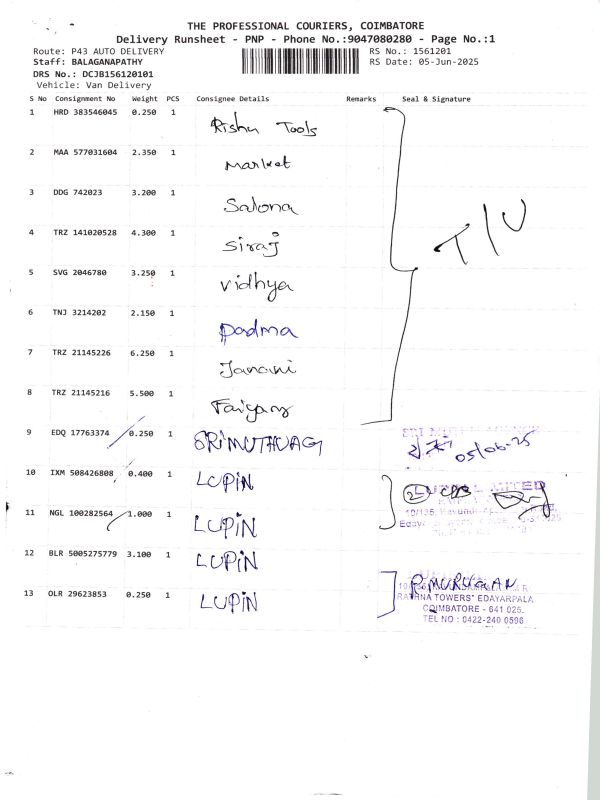 THE PROFESSIONAL COURIERS, COIMBATORE
Delivery Runsheet - PNP - Phone No.:9047080280 - Page No.:1
Route: P43 AUTO DELIVERY RS No.: 1561201
Staff: BALAGANAPATHY RS Date: 05-Jun-2025
DRS No.: DCJB156120101
Vehicle: Van Delivery
S No Consignment No Weight PCS Consignee Details Remarks Seal & Signature
1 HRD 383546045 0.250 1 Rishu Tools
2 MAA 577031604 2.350 1 Market
3 DDG 742023 3.200 1 Salona
4 TRZ 141020528 4.300 1 Siraj
T/U
5 SVG 2046780 3.250 1 Vidhya
6 TNJ 3214202 2.150 1 Padma
7 TRZ 21145226 6.250 1 Janani
8 TRZ 21145216 5.500 1 Faiyaz
9 EDQ 17763374 0.250 1 SRIMUTHUAGI
05/06-25
10 IXM 508426808 0.400 1 LUPIN
11 NGL 100282564 1.000 1 LUPIN
12 BLR 5005275779 3.100 1 LUPIN
13 OLR 29623853 0.250 1 LUPIN
P. MURUGAN
RATHNA TOWERS' EDAYARPALA
COIMBATORE - 641 025.
TEL NO : 0422-240 0596